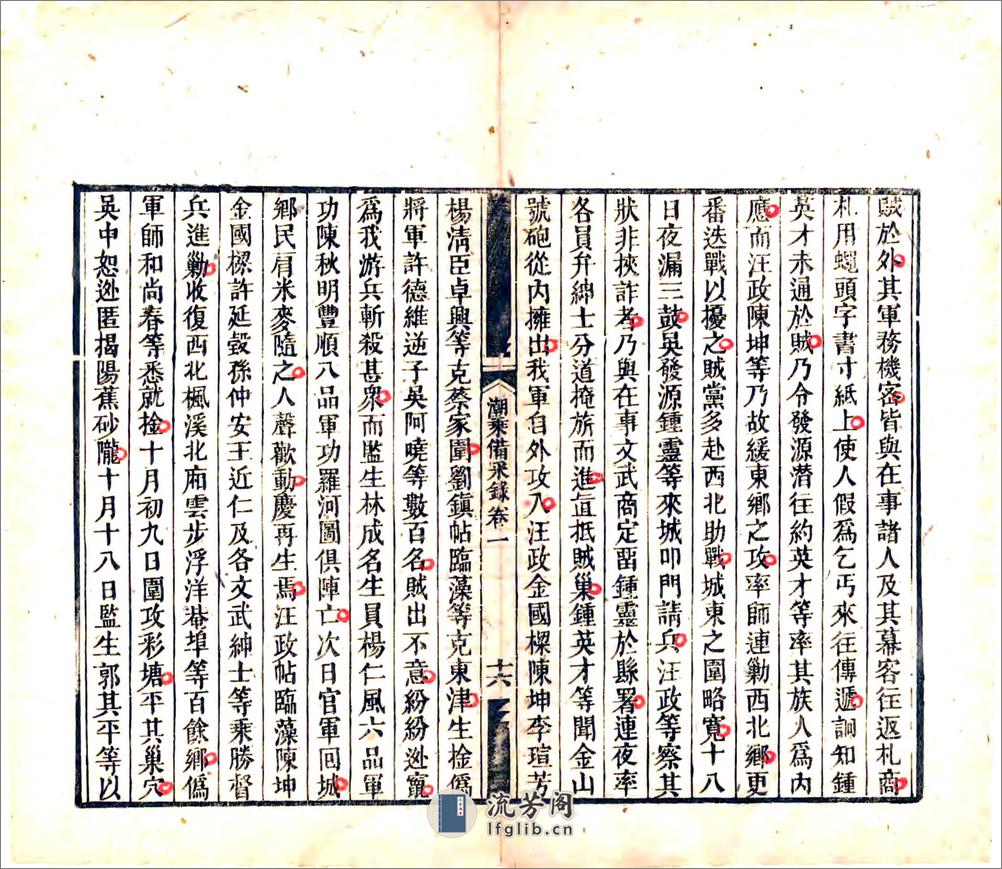 賊於外其軍務機密皆與在事諸人及其幕客往返札商
札用蠅頭字書寸紙上使人假爲乞丐來往傳遞詗知鍾
英才未通於賊乃令發源潛往約英才等率其族人爲内
應而汪政陳坤等乃故緩東鄉之攻率師連勦西北鄉更
番迭戰以擾之賊黨多赴西北助戰城東之圍略寬十八
日夜漏三鼓吳發源鍾靈等來城叩門請兵汪政等察其
狀非挾詐者乃與在事文武商定留鍾靈於縣署連夜率
各員弁紳士分道掩旂而進直抵賊巢鍾英才等聞金山
號砲從内擁出我軍自外攻入汪政金國樑陳坤李瑄芳
潮乘備采錄卷一
十六
楊淸臣卓興等克蔡家圍劉鎮帖臨藻等克東津生捦僞
將軍許德維逆子吳阿曉等數百名賊出不意紛紛逃竄
爲我游兵斬殺甚衆而監生林成名生員楊仁風六品軍
功陳秋明豐順八品軍功羅河圖俱陣亡次日官軍回城
鄉民肩米麥隨之人聲歡動慶再生焉汪政帖臨藻陳坤
金國樑許延毅孫仲安王近仁及各文武紳士等乘勝督
兵進勦收復西北楓溪北廂雲步浮洋菴埠等百餘鄉僞
軍師和尚春等悉就捦十月初九日圍攻彩塘平其巢穴
吳中恕逃匿揭陽蕉砂隴十月十八日監生郭其平等以
流芳阁
lfglib.cn